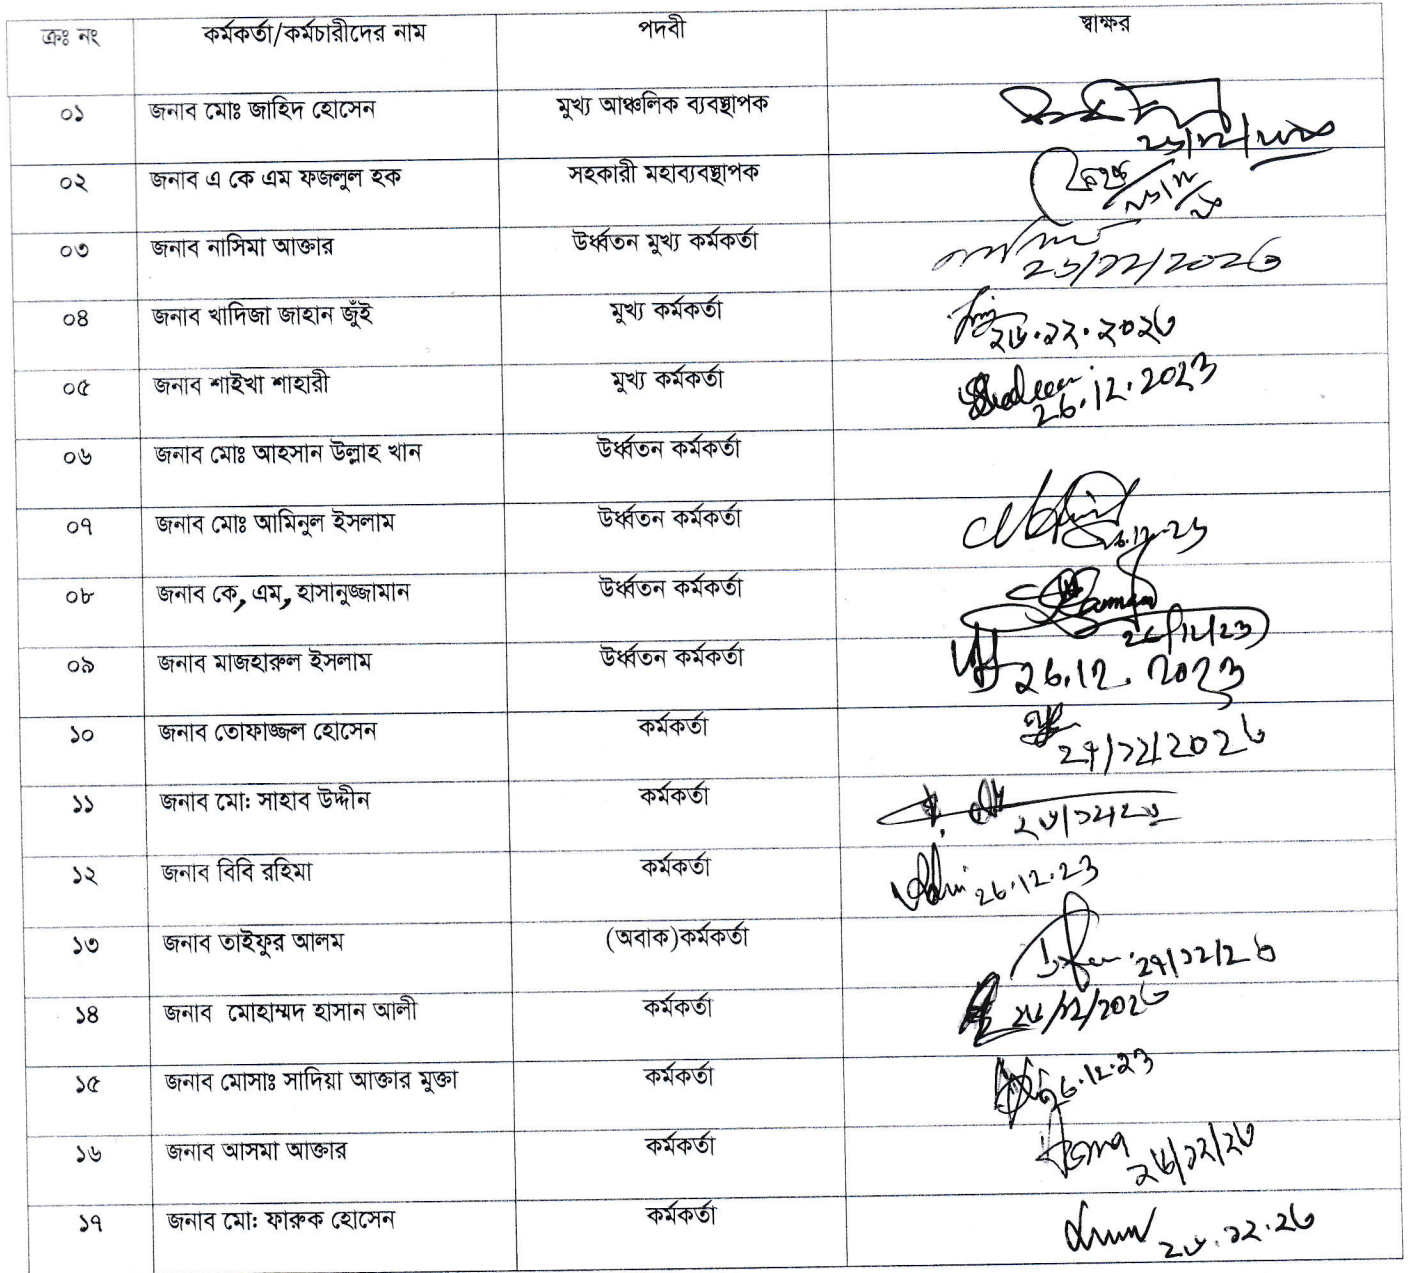 ক্রঃ নং কর্মকর্তা/কর্মচারীদের নাম পদবী স্বাক্ষর
০১ জনাব মোঃ জাহিদ হোসেন মুখ্য আঞ্চলিক ব্যবস্থাপক
০২ জনাব এ কে এম ফজলুল হক সহকারী মহাব্যবস্থাপক
০৩ জনাব নাসিমা আক্তার উর্ধ্বতন মুখ্য কর্মকর্তা
০৪ জনাব খাদিজা জাহান জুঁই মুখ্য কর্মকর্তা ২৬.১২.২০২৩
০৫ জনাব শাইখা শাহারী মুখ্য কর্মকর্তা 26.12.2023
০৬ জনাব মোঃ আহসান উল্লাহ খান উর্ধ্বতন কর্মকর্তা
০৭ জনাব মোঃ আমিনুল ইসলাম উর্ধ্বতন কর্মকর্তা
০৮ জনাব কে, এম, হাসানুজ্জামান উর্ধ্বতন কর্মকর্তা 26/12/23
০৯ জনাব মাজহারুল ইসলাম উর্ধ্বতন কর্মকর্তা 26.12.2023
১০ জনাব তোফাজ্জল হোসেন কর্মকর্তা
১১ জনাব মো: সাহাব উদ্দীন কর্মকর্তা ২৬/১২/২৩
১২ জনাব বিবি রহিমা কর্মকর্তা 26.12.23
১৩ জনাব তাইফুর আলম (অবাক)কর্মকর্তা
১৪ জনাব মোহাম্মদ হাসান আলী কর্মকর্তা ২৬/১২/২০২৩
১৫ জনাব মোসাঃ সাদিয়া আক্তার মুক্তা কর্মকর্তা 26.12.23
১৬ জনাব আসমা আক্তার কর্মকর্তা Asma ২৬/১২/২৩
১৭ জনাব মো: ফারুক হোসেন কর্মকর্তা ২৬.১২.২৩